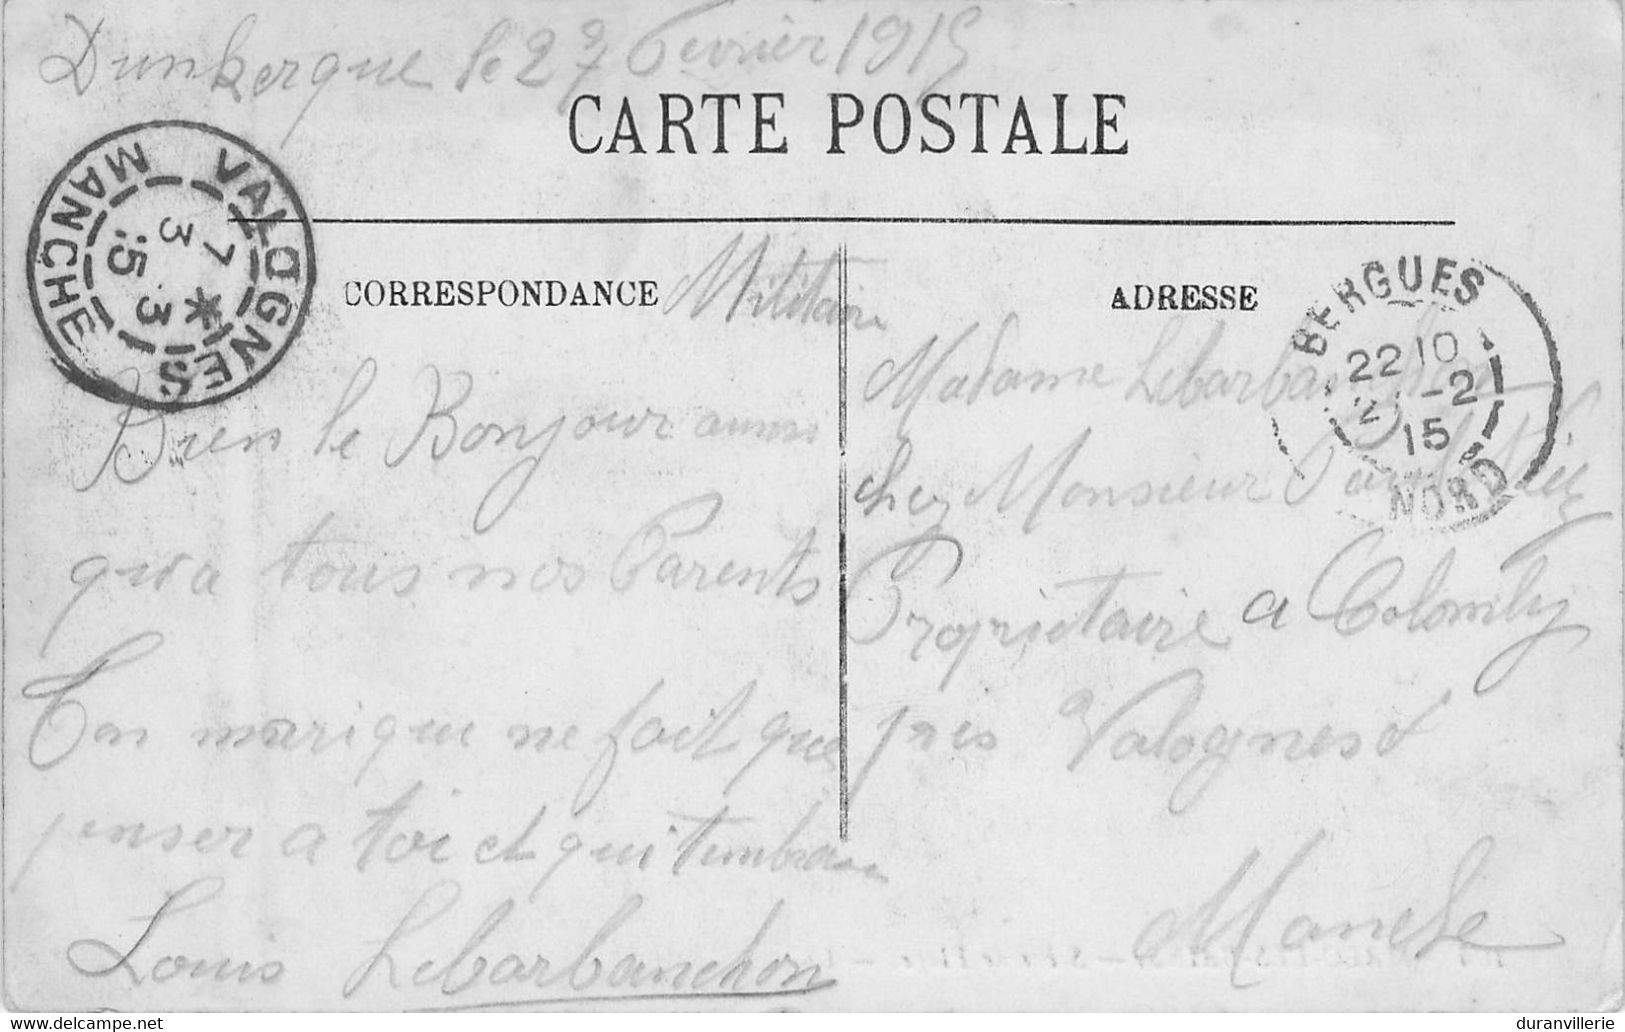 Dunkerque le 27 Fevrier 1915
CARTE POSTALE
VALOGNES
MANCHE
7
3 *
3
15
CORRESPONDANCE
Militaire
Bien le Bonjour ainsi
qua tous nos Parents
Ton mari que ne fait que
penser a toi et qui t'embrasse
Louis Lebarbanchon
ADRESSE
BERGUES
22 10
-2
15
NORD
Madame Lebarbanchon
chez Monsieur
Propriétaire a Colomby
pres Valognes
Manche
delcampe.net
duranvillerie